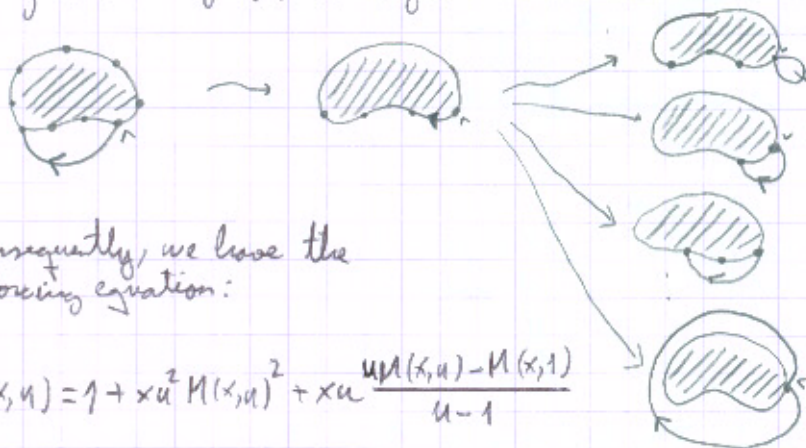 nsequently, we have the
owing equation:
x,u) = 1 + xu² M(x,u)² + xu (uM(x,u) - M(x,1))/(u-1)